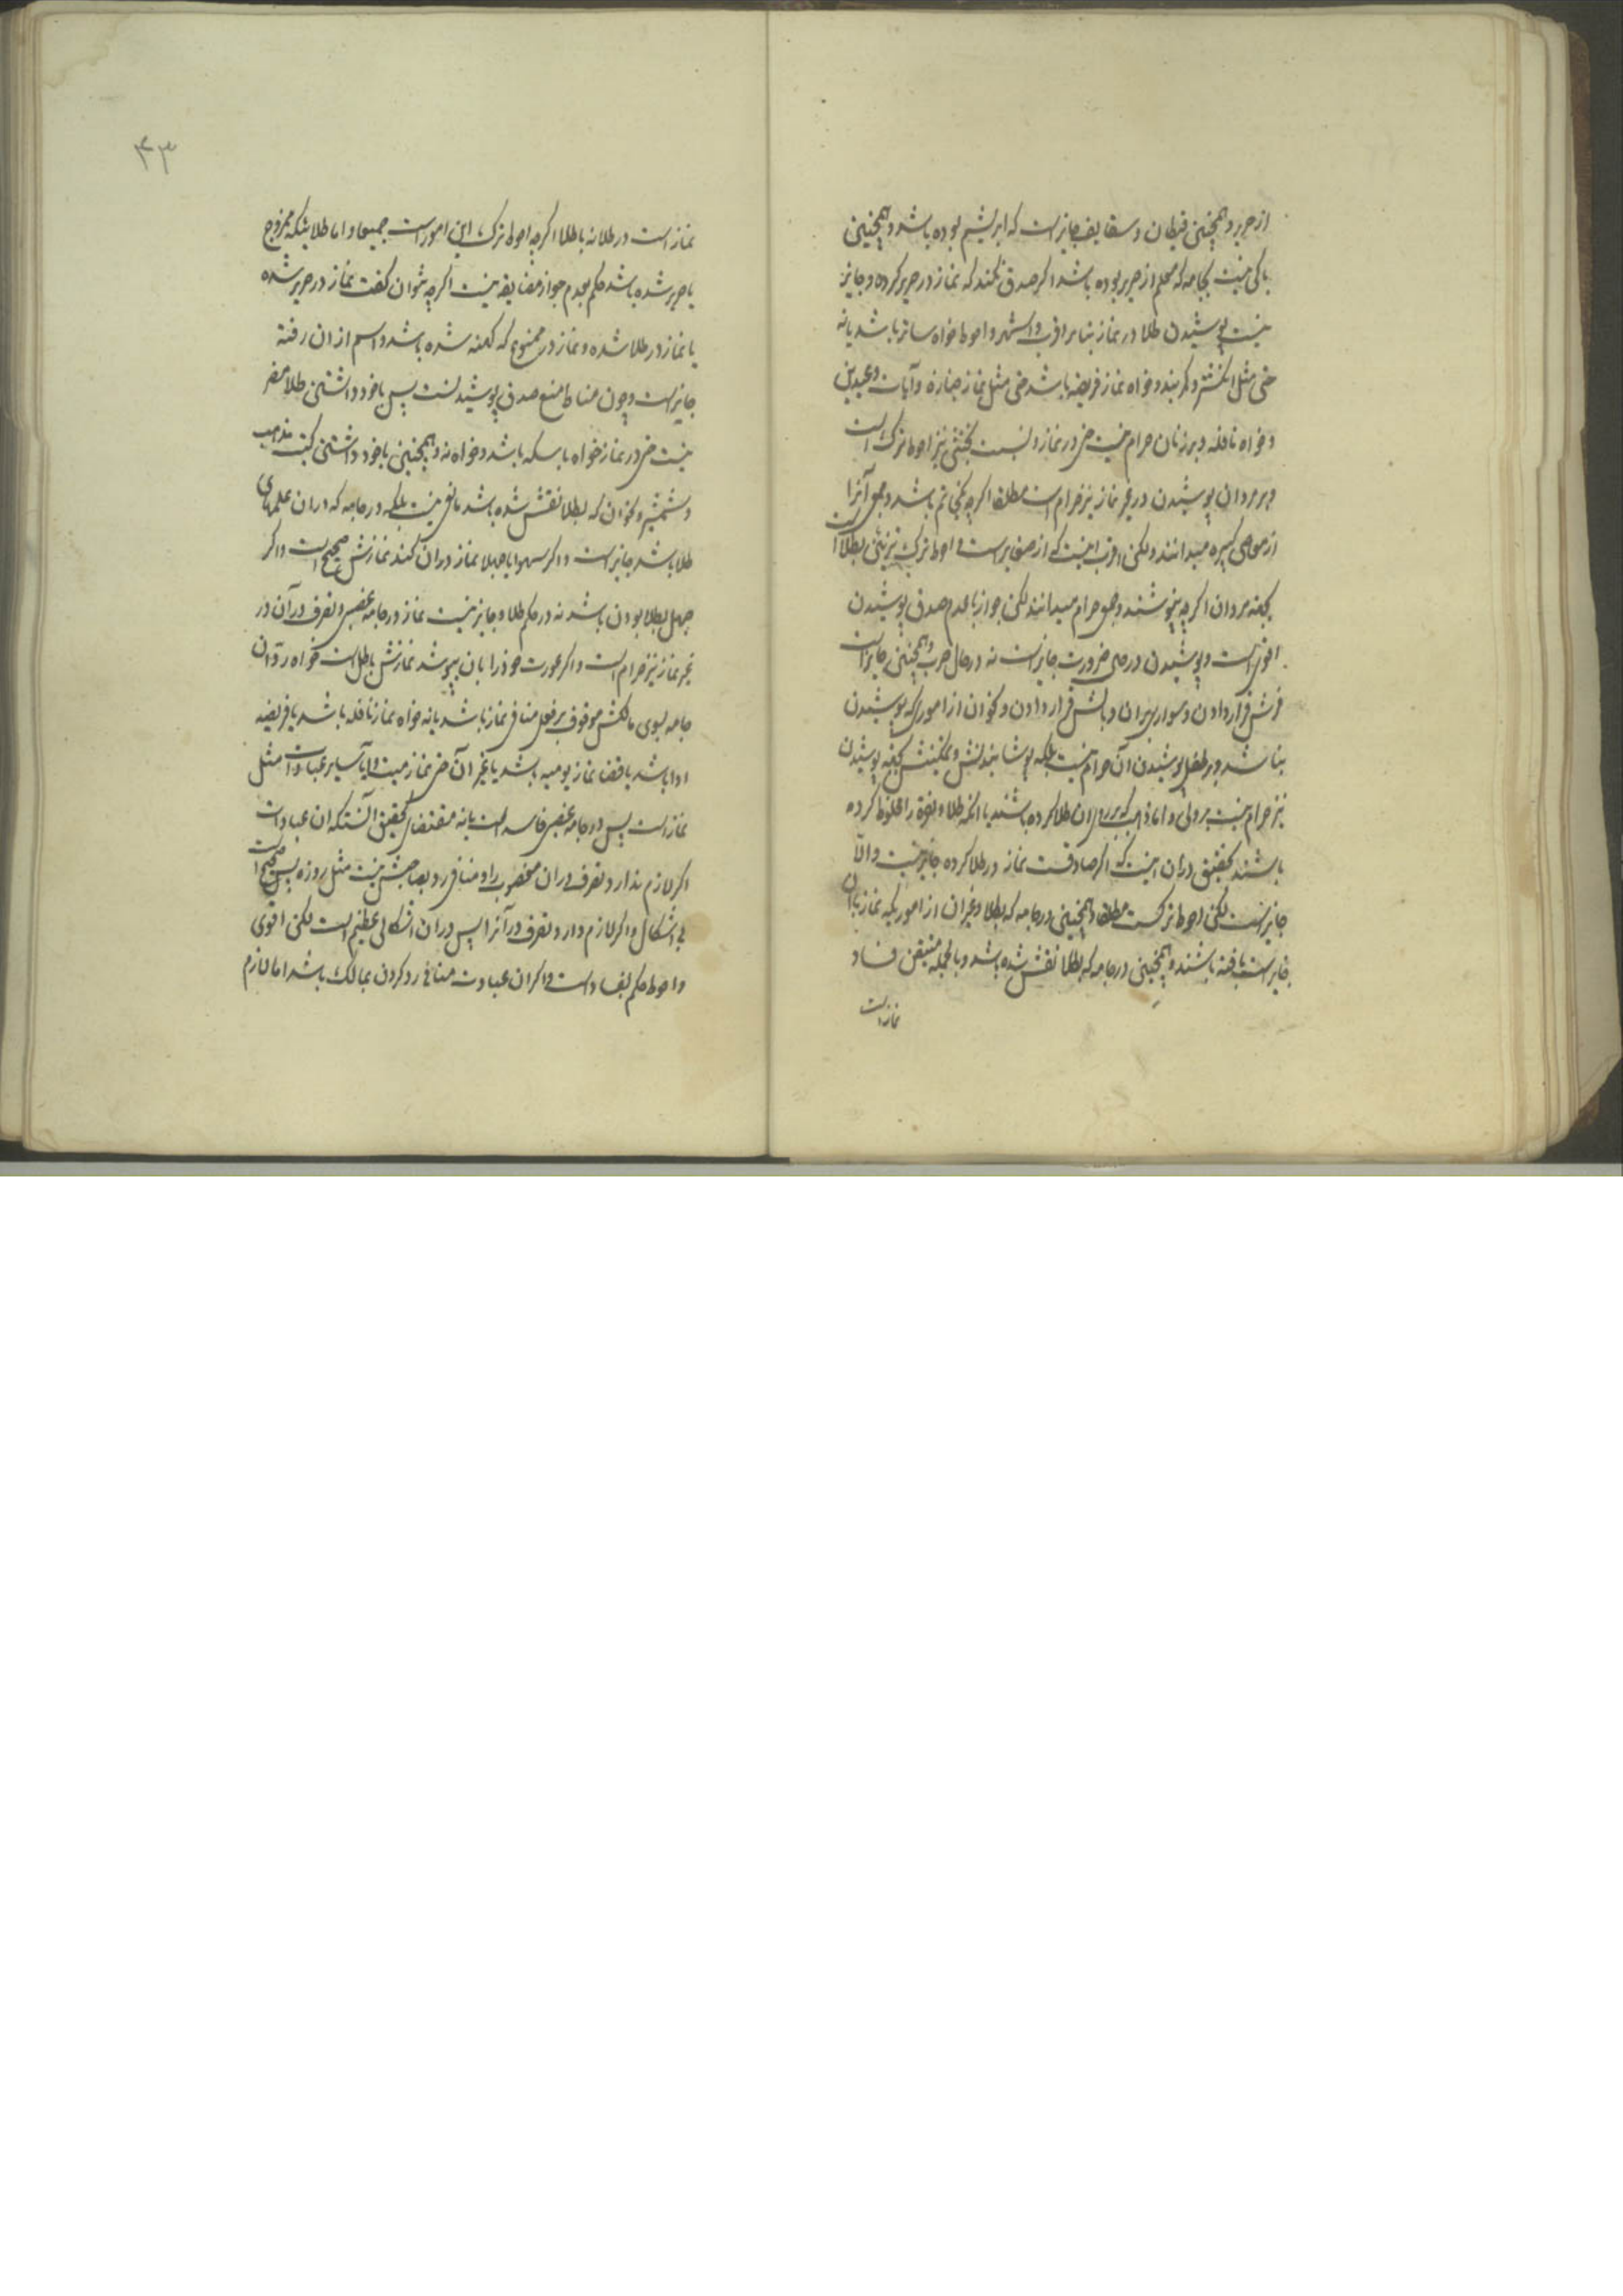 از حریر و همچنین قیطان و سقایف جایز است که ابریشم بوده باشد و همچنین
باکی نیست بجامه که معلم از حریر بوده باشد اگر صدق نکند که نماز در حریر کرده و جایز
نیست پوشیدن طلا در نماز بنابر اقرب و اشهر و احوط خواه ساتر باشد یا نه
حتی مثل انگشتر و کمربند و خواه نماز فریضه باشد حتی مثل نماز جنازه و آیات و عیدین
و خواه نافله و بر زنان حرام نیست حتی در نماز و نسبت بخنثی نیز احوط ترک است
و بر مردان پوشیدن در غیر نماز نیز حرام است مطلقا اگرچه بخاتم باشد و جمعی آنرا
از معاصی کبیره میدانند ولکن اقرب اینست که از صغایر است و احوط ترک تزیین بطلا است
بجهة مردان اگرچه نپوشند و جمعی حرام میدانند لکن جواز با عدم صدق پوشیدن
اقوی است و پوشیدن در حین ضرورت جایز است نه در حال حرب و همچنین جایز است
فرش قرار دادن و سوار بر آن و بالش قرار دادن و نحو آن از اموریکه پوشیدن
نباشد و بر طفل پوشیدن آن حرام نیست بلکه پوشانیدنش و تمکینش بجهة پوشیدن
نیز حرام نیست بر ولی و اما که بر روی آن طلا کرده باشند یا آنکه طلا و نقره را مخلوط کرده
باشند تحقیق در آن اینست که اگر صادقست نماز در طلا کرده جایز نیست و الا
جایز است لکن احوط ترکست مطلقا و همچنین در جامه که بطلا و غیر آن از اموریکه نماز بآن
جایز است بافته باشند و همچنین در جامه که بطلا نقش شده باشد و بالجمله متیقن فساد
نماز است
۴۳
نماز است در طلا نه با طلا اگرچه احوط ترک این امور است جمیعا و اما طلائیکه ممزوج
با حریر شده باشد حکم بعدم جواز مضایقه نیست اگرچه نتوان گفت نماز در حریر شده
یا نماز در طلا شده و نماز در ممنوع که کهنه شده باشد و اسم از آن رفته
جایز است و چون مناط منع صدق پوشیدنست پس با خود داشتن طلا مضر
نیست حتی در نماز خواه با سکه باشد و خواه نه و همچنین با خود داشتن کتب مذهب
و شمشیر و نحو آن که بطلا نقش شده باشد مانع نیست بلکه در جامه که در آن علمهای
طلا باشد جایز است و اگر سهوا یا جهلا نماز در آن کند نمازش صحیح است و اگر
جهل بطلا بودن باشد نه در حکم طلا و جایز نیست نماز در جامه غصبی و تصرف در آن در
غیر نماز نیز حرام است و اگر عورت خود را بآن بپوشد نمازش باطل است خواه رد آن
جامه بسوی مالکش موقوف بر فعل منافی نماز باشد یا نه خواه نماز نافله باشد یا فریضه
ادا باشد یا قضا نماز یومیه باشد یا غیر آن حتی نماز میت و آیا سایر عبادات مثل
نماز است پس در جامه غصبی فاسد است یا نه مقتضای تحقیق آنستکه آن عبادت
اگر لازم ندارد تصرف در آن مغصوب را و منافی رد بصاحبش نیست مثل روزه پس صحیح است
بی اشکال و اگر لازم دارد تصرف در آنرا پس در آن اشکالی عظیم است لکن اقوی
و احوط حکم بفساد است و اگر آن عبادت منافی رد کردن بمالک باشد اما لازم